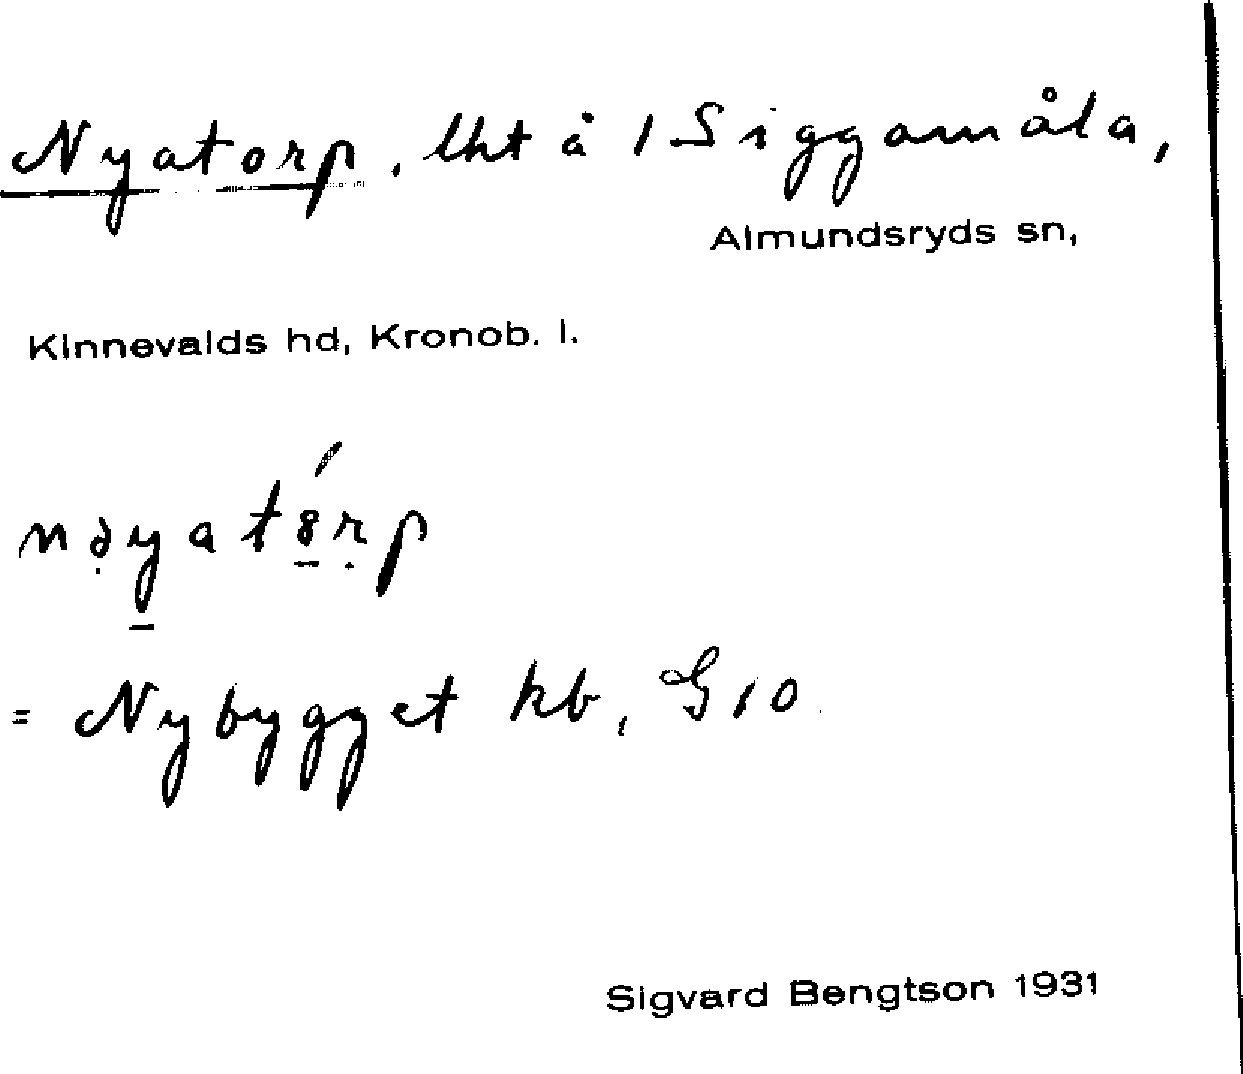 Nyatorp, lht å 1 Siggamåla,
Almundsryds sn,
Kinnevalds hd, Kronob. l.
= Nybygget kb, G10
Sigvard Bengtson 1931